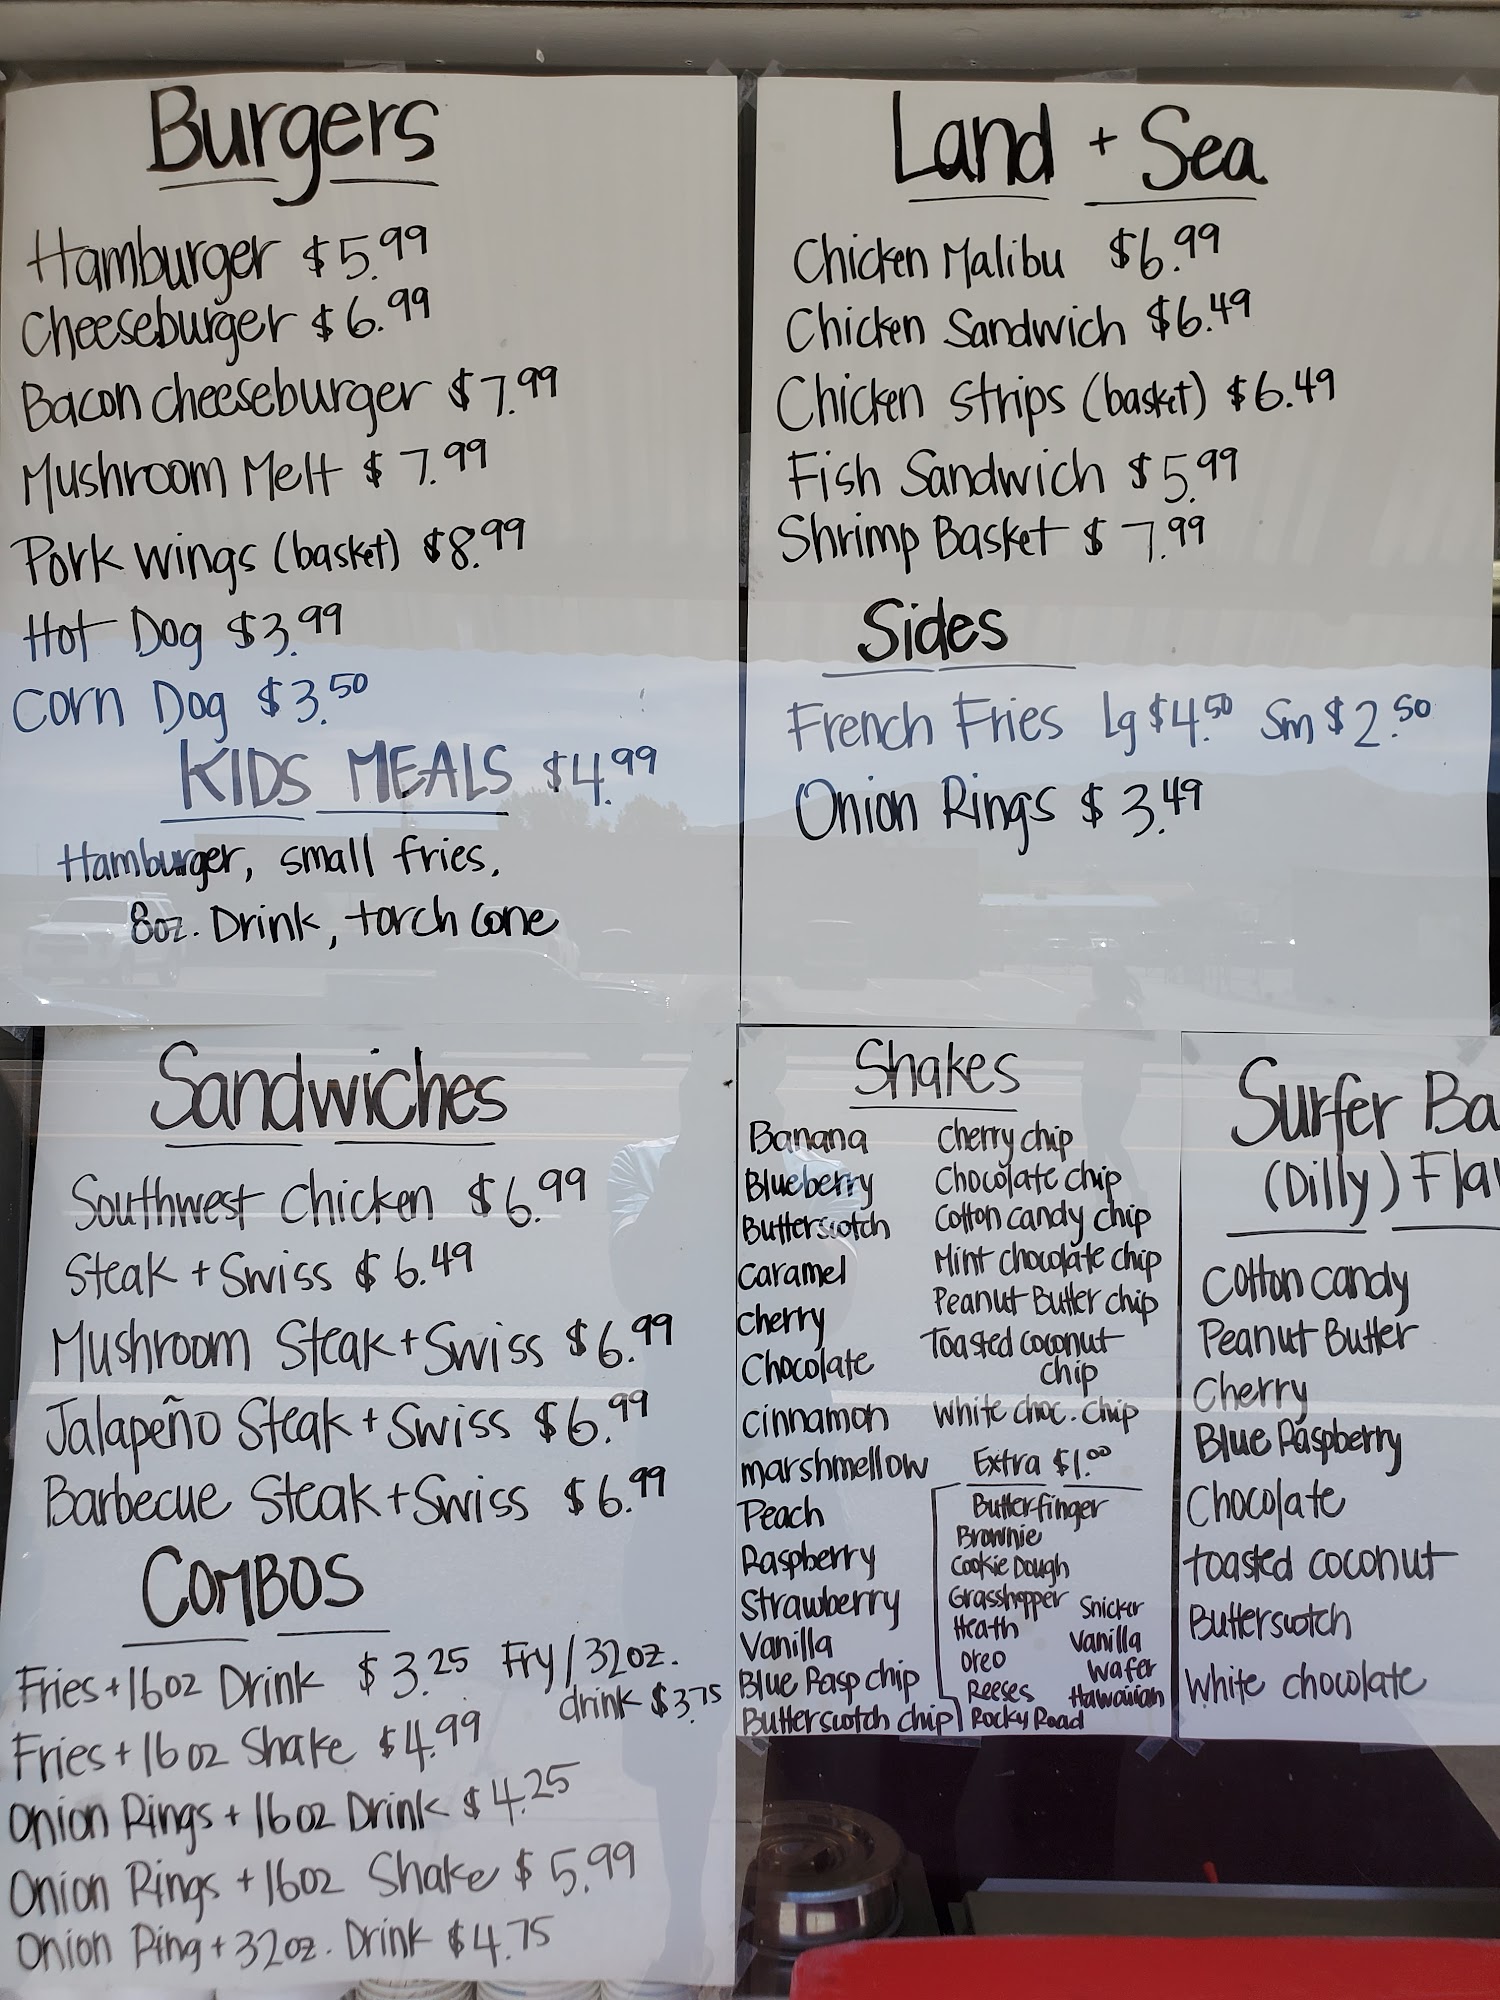 Burgers
Hamburger $5.99
Cheeseburger $6.99
Bacon cheeseburger $7.99
Mushroom Melt $7.99
Pork wings (basket) $8.99
Hot Dog $3.99
Corn Dog $3.50
KIDS MEALS $4.99
Hamburger, small fries,
8oz. Drink, torch cone
Land + Sea
Chicken Malibu $6.99
Chicken Sandwich $6.49
Chicken strips (basket) $6.49
Fish Sandwich $5.99
Shrimp Basket $7.99
Sides
French Fries Lg $4.50 Sm $2.50
Onion Rings $3.49
Sandwiches
Southwest Chicken $6.99
Steak + Swiss $6.49
Mushroom Steak + Swiss $6.99
Jalapeño Steak + Swiss $6.99
Barbecue Steak + Swiss $6.99
COMBOS
Fries + 16oz Drink $3.25 Fry / 32oz.
drink $3.75
Fries + 16oz Shake $4.99
Onion Rings + 16oz Drink $4.25
Onion Rings + 16oz Shake $5.99
Onion Ring + 32oz. Drink $4.75
Shakes
Banana
Blueberry
Butterscotch
Caramel
Cherry
Chocolate
Cinnamon
Marshmellow
Peach
Raspberry
Strawberry
Vanilla
Blue Rasp chip
Butterscotch chip
Cherry chip
Chocolate chip
Cotton candy chip
Mint chocolate chip
Peanut Butter chip
Toasted coconut
chip
White choc. chip
Extra $1.00
Butterfinger
Brownie
Cookie Dough
Grasshopper
Heath
Oreo
Reeses
Rocky Road
Snicker
Vanilla
Wafer
Hawaiian
Surfer Ba
(Dilly) Fla
Cotton candy
Peanut Butter
Cherry
Blue Raspberry
Chocolate
toasted coconut
Butterscotch
White chocolate